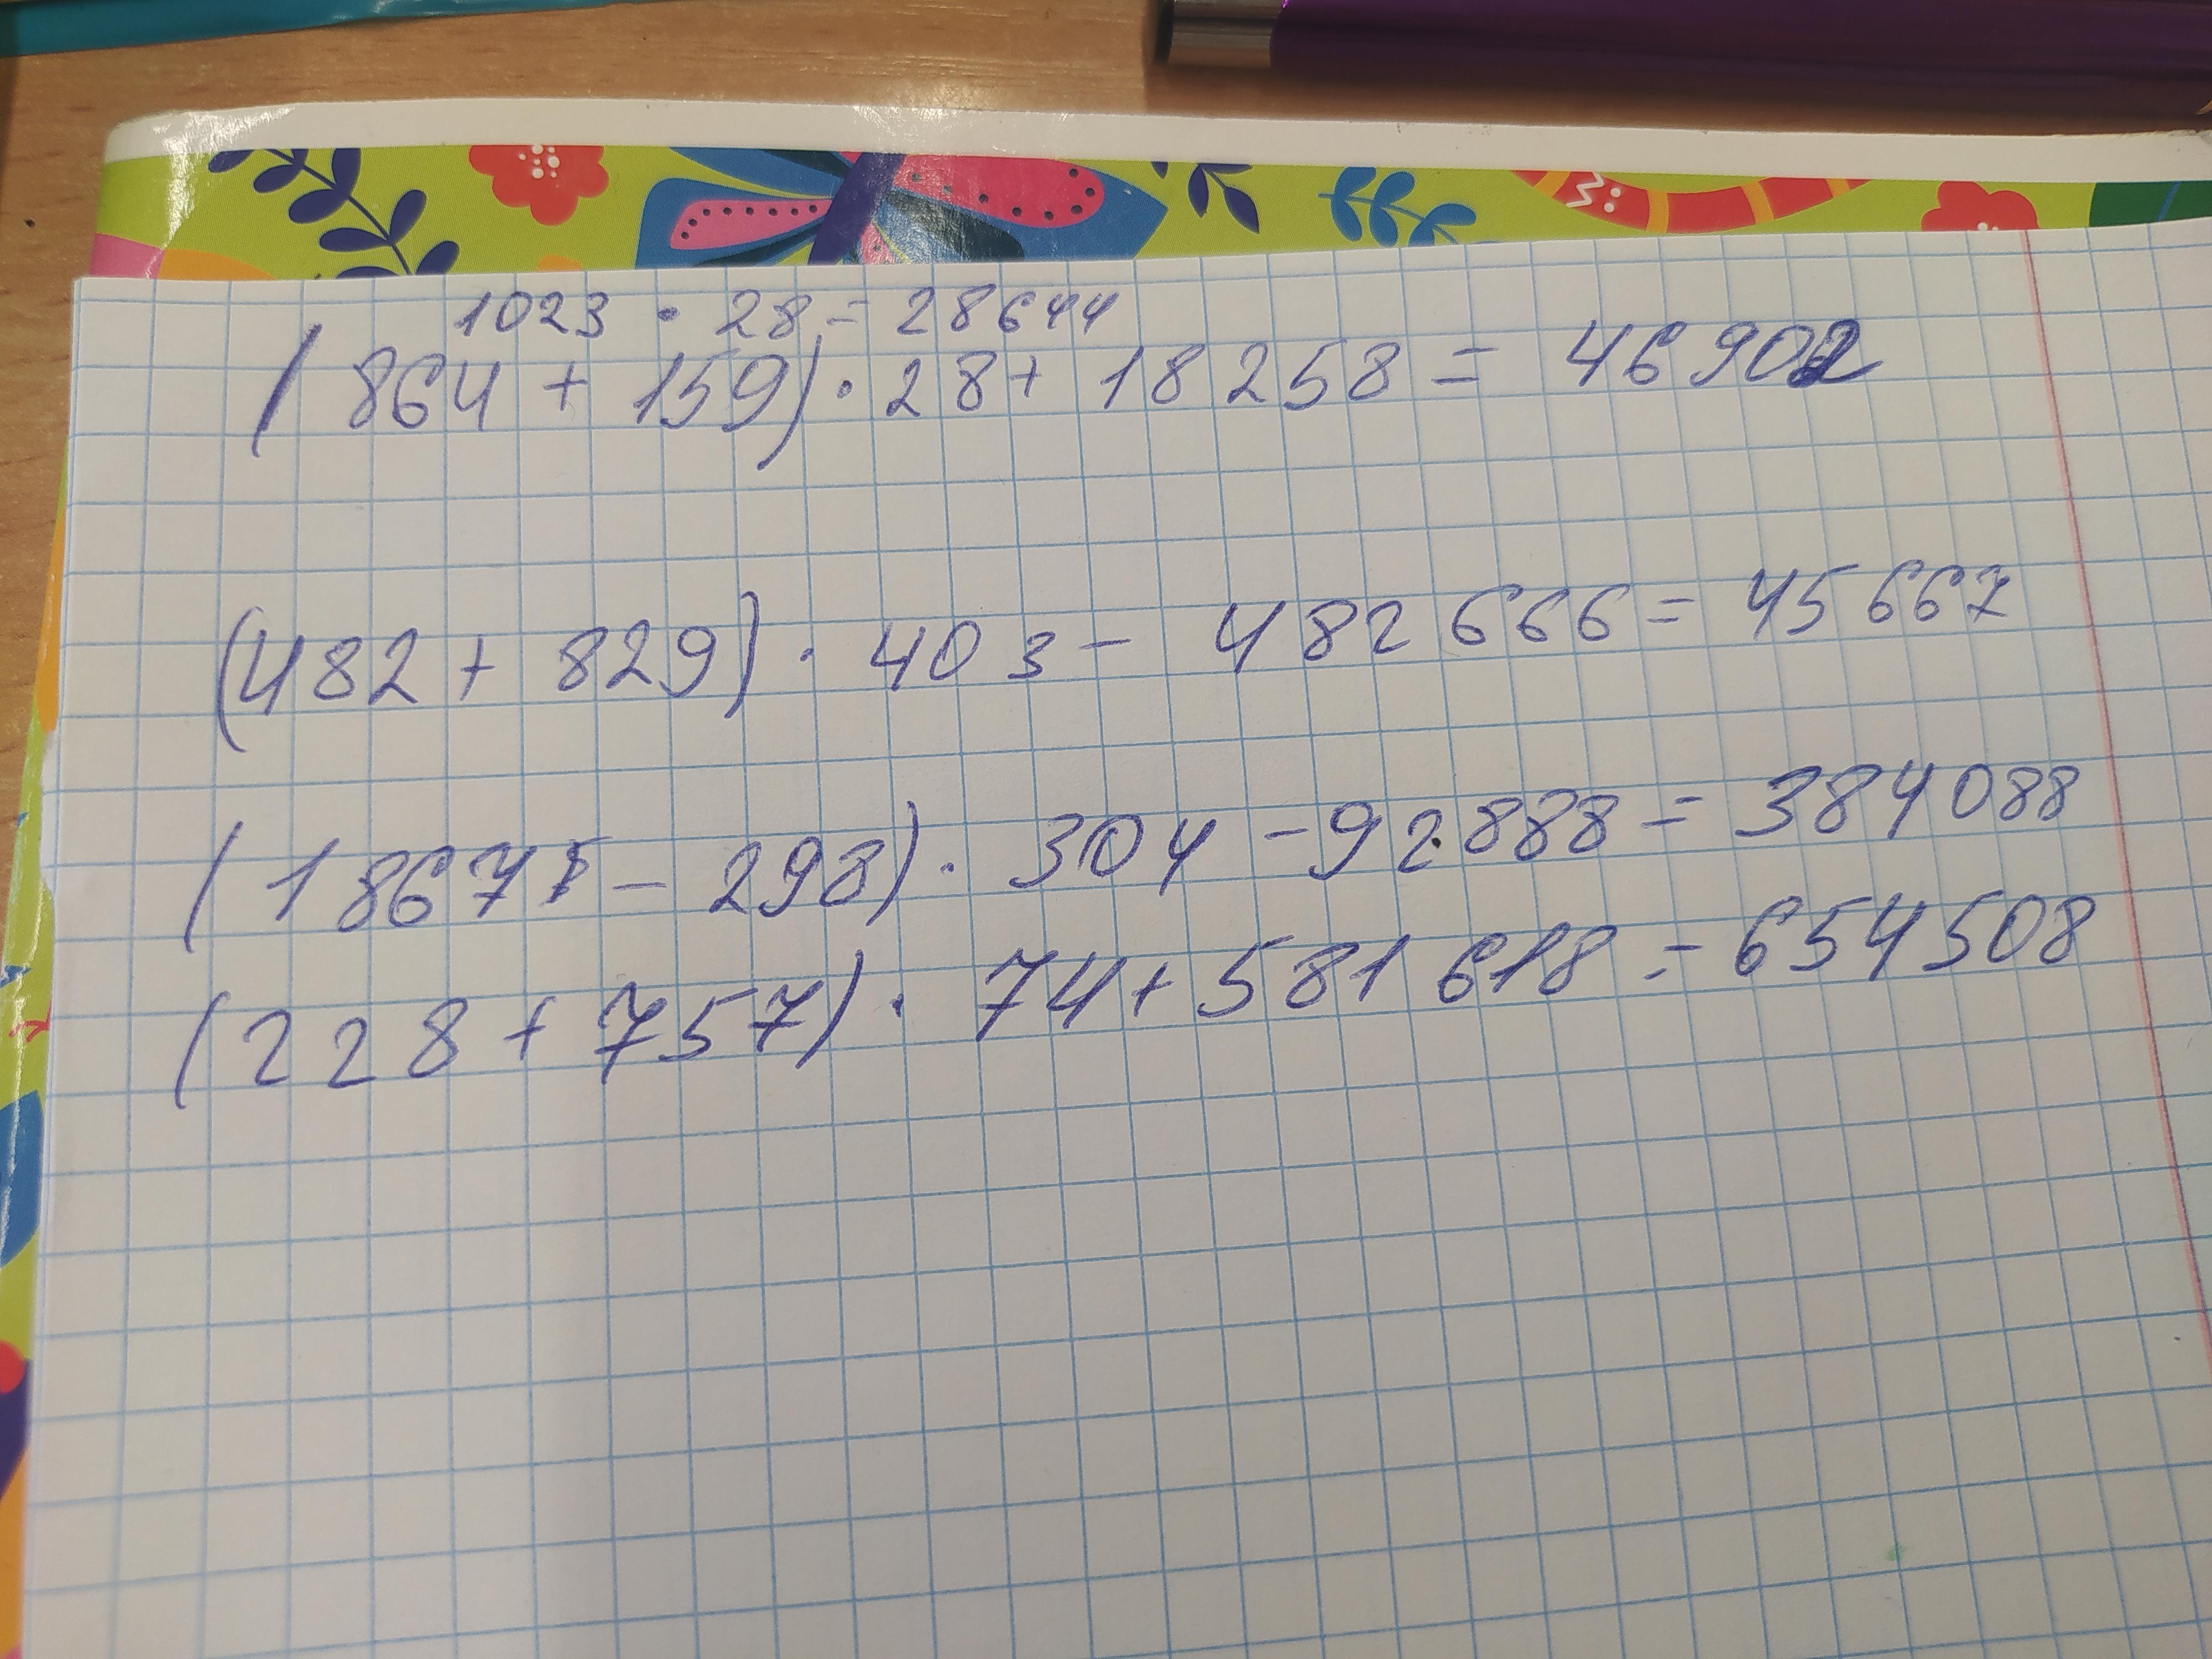 1023 · 28 = 28644
(864 + 159) · 28 + 18258 = 46902
(482 + 829) · 403 - 482666 = 45667
(18675 - 298) · 304 - 92888 = 384088
(228 + 757) · 74 + 581618 = 654508